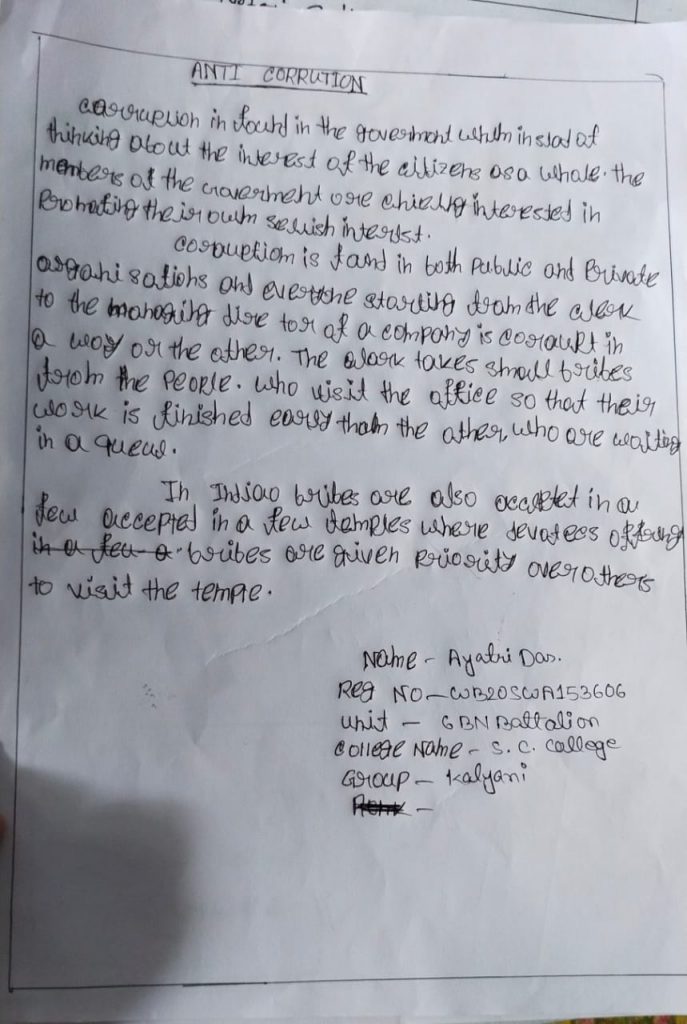 ANTI CORRUTION
corruption in found in the goverment when instad of
thinking about the interest of the citizens as a whole. the
members of the Goverment are chiefly interested in
Promoting their own selfish interst.
corruption is fand in both Public and Private
organisations and everyone starting from the clerk
to the managing dire tor of a company is corrupt in
a way or the other. The clark takes small bribes
from the People. who visit the office so that their
work is finished early than the other, who are waiting
in a queue.
In India bribes are also accaptet in a
few accepted in a few temples where devatees offring
in a few a bribes are given Priority over others
to visit the tempe.
Name - Ayatri Das.
Reg NO - WB20SWA153606
unit - 6 BN Battalion
college Name - S. C. college
Group - Kalyani